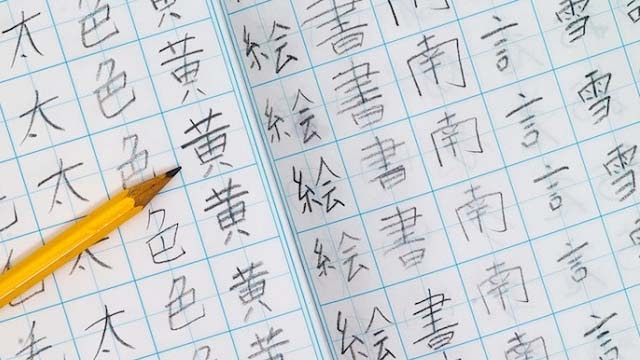 雪雪雪
言言言言
南南南南南
書書書書書
絵絵絵絵絵
黄黄黄黄黄
色色色色色
太太太太太